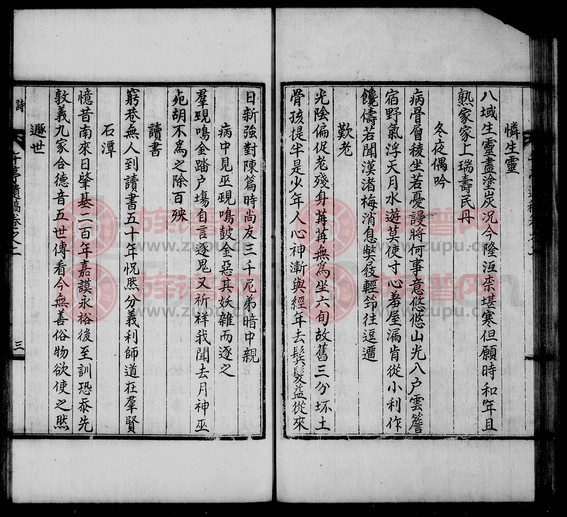 憐生靈
八域生靈盡塗炭況今隆沍柰堪寒但願時和年且
熟家家上瑞壽民丹
冬夜偶吟
病骨層稜坐若憂謾將何事意悠悠山光入戶雲簷
宿野氣浮天月水遊莫使寸心
屋漏肯從小利作
饞儔若聞漢渚梅消息
輕筇往逗遛
歎老
光陰偏促老殘身苒苒無為坐六旬故舊三分坏土
骨孩提半是少年人心神漸與經年去鬂髮益從來
日新強對陳篇時尚友三千尼弟暗中親
病中見巫覡鳴鼓金惡其妖雜而逐之
羣覡鳴金踏戶場自言逐鬼又祈祥我聞去月神巫
死胡不為之除百殃
讀書
窮巷無人到讀書五十年怳然分義利師道在羣賢
石潭
憶昔南來日肇基二百年嘉謨永裕後至訓恐忝先
敦義九家合德音五世傳看今無善俗物欲使之然
遯世
詩
卷之二
三